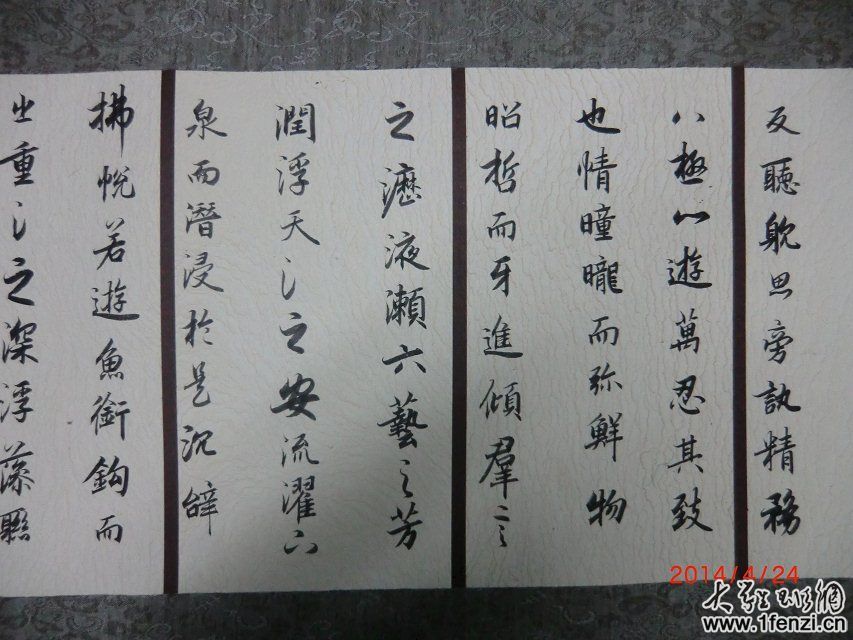 反聽躭思旁訊精務
八極心遊萬忍其致
也情曈曨而弥鮮物
昭哲而牙進傾羣言
之瀝液瀬六藝之芳
潤浮天之安流濯下
泉而潛浸於是沉辞
拂悦若遊魚銜鈎而
出重之深浮藻聯
2014/4/24
www.1fenzi.cn